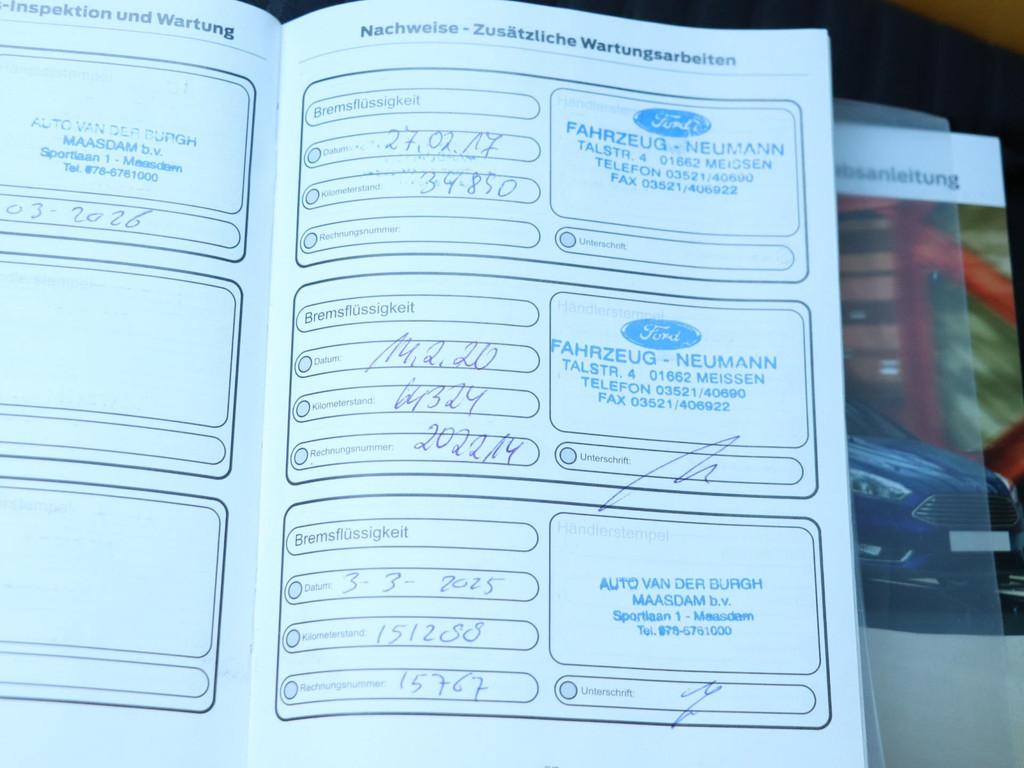 -Inspektion und Wartung
AUTO VAN DER BURGH
MAASDAM b.v.
Sportlaan 1 - Maasdam
Tel. 078-6761000
03-2026
Nachweise - Zusätzliche Wartungsarbeiten
Bremsflüssigkeit
Datum: 27.02.17
Kilometerstand: 34.850
Rechnungsnummer:
Händlerstempel
Ford
FAHRZEUG - NEUMANN
TALSTR. 4 01662 MEISSEN
TELEFON 03521/40690
FAX 03521/406922
Unterschrift:
Bremsflüssigkeit
Datum: 14.2.20
Kilometerstand: 64324
Rechnungsnummer: 2022114
Händlerstempel
Ford
FAHRZEUG - NEUMANN
TALSTR. 4 01662 MEISSEN
TELEFON 03521/40690
FAX 03521/406922
Unterschrift:
Bremsflüssigkeit
Datum: 3-3-2025
Kilometerstand: 151288
Rechnungsnummer: 15767
Händlerstempel
AUTO VAN DER BURGH
MAASDAM b.v.
Sportlaan 1 - Maasdam
Tel. 078-6761000
Unterschrift:
bsanleitung